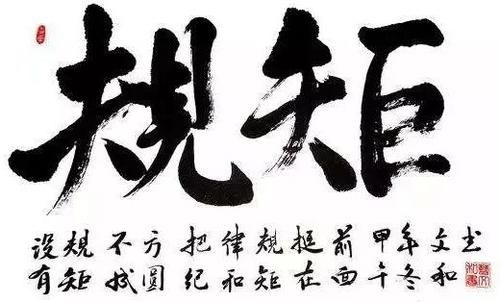 規矩
没有
規矩
不成
方圆
把纪
律和
規矩
挺在
前面
甲午
年冬
文和
书